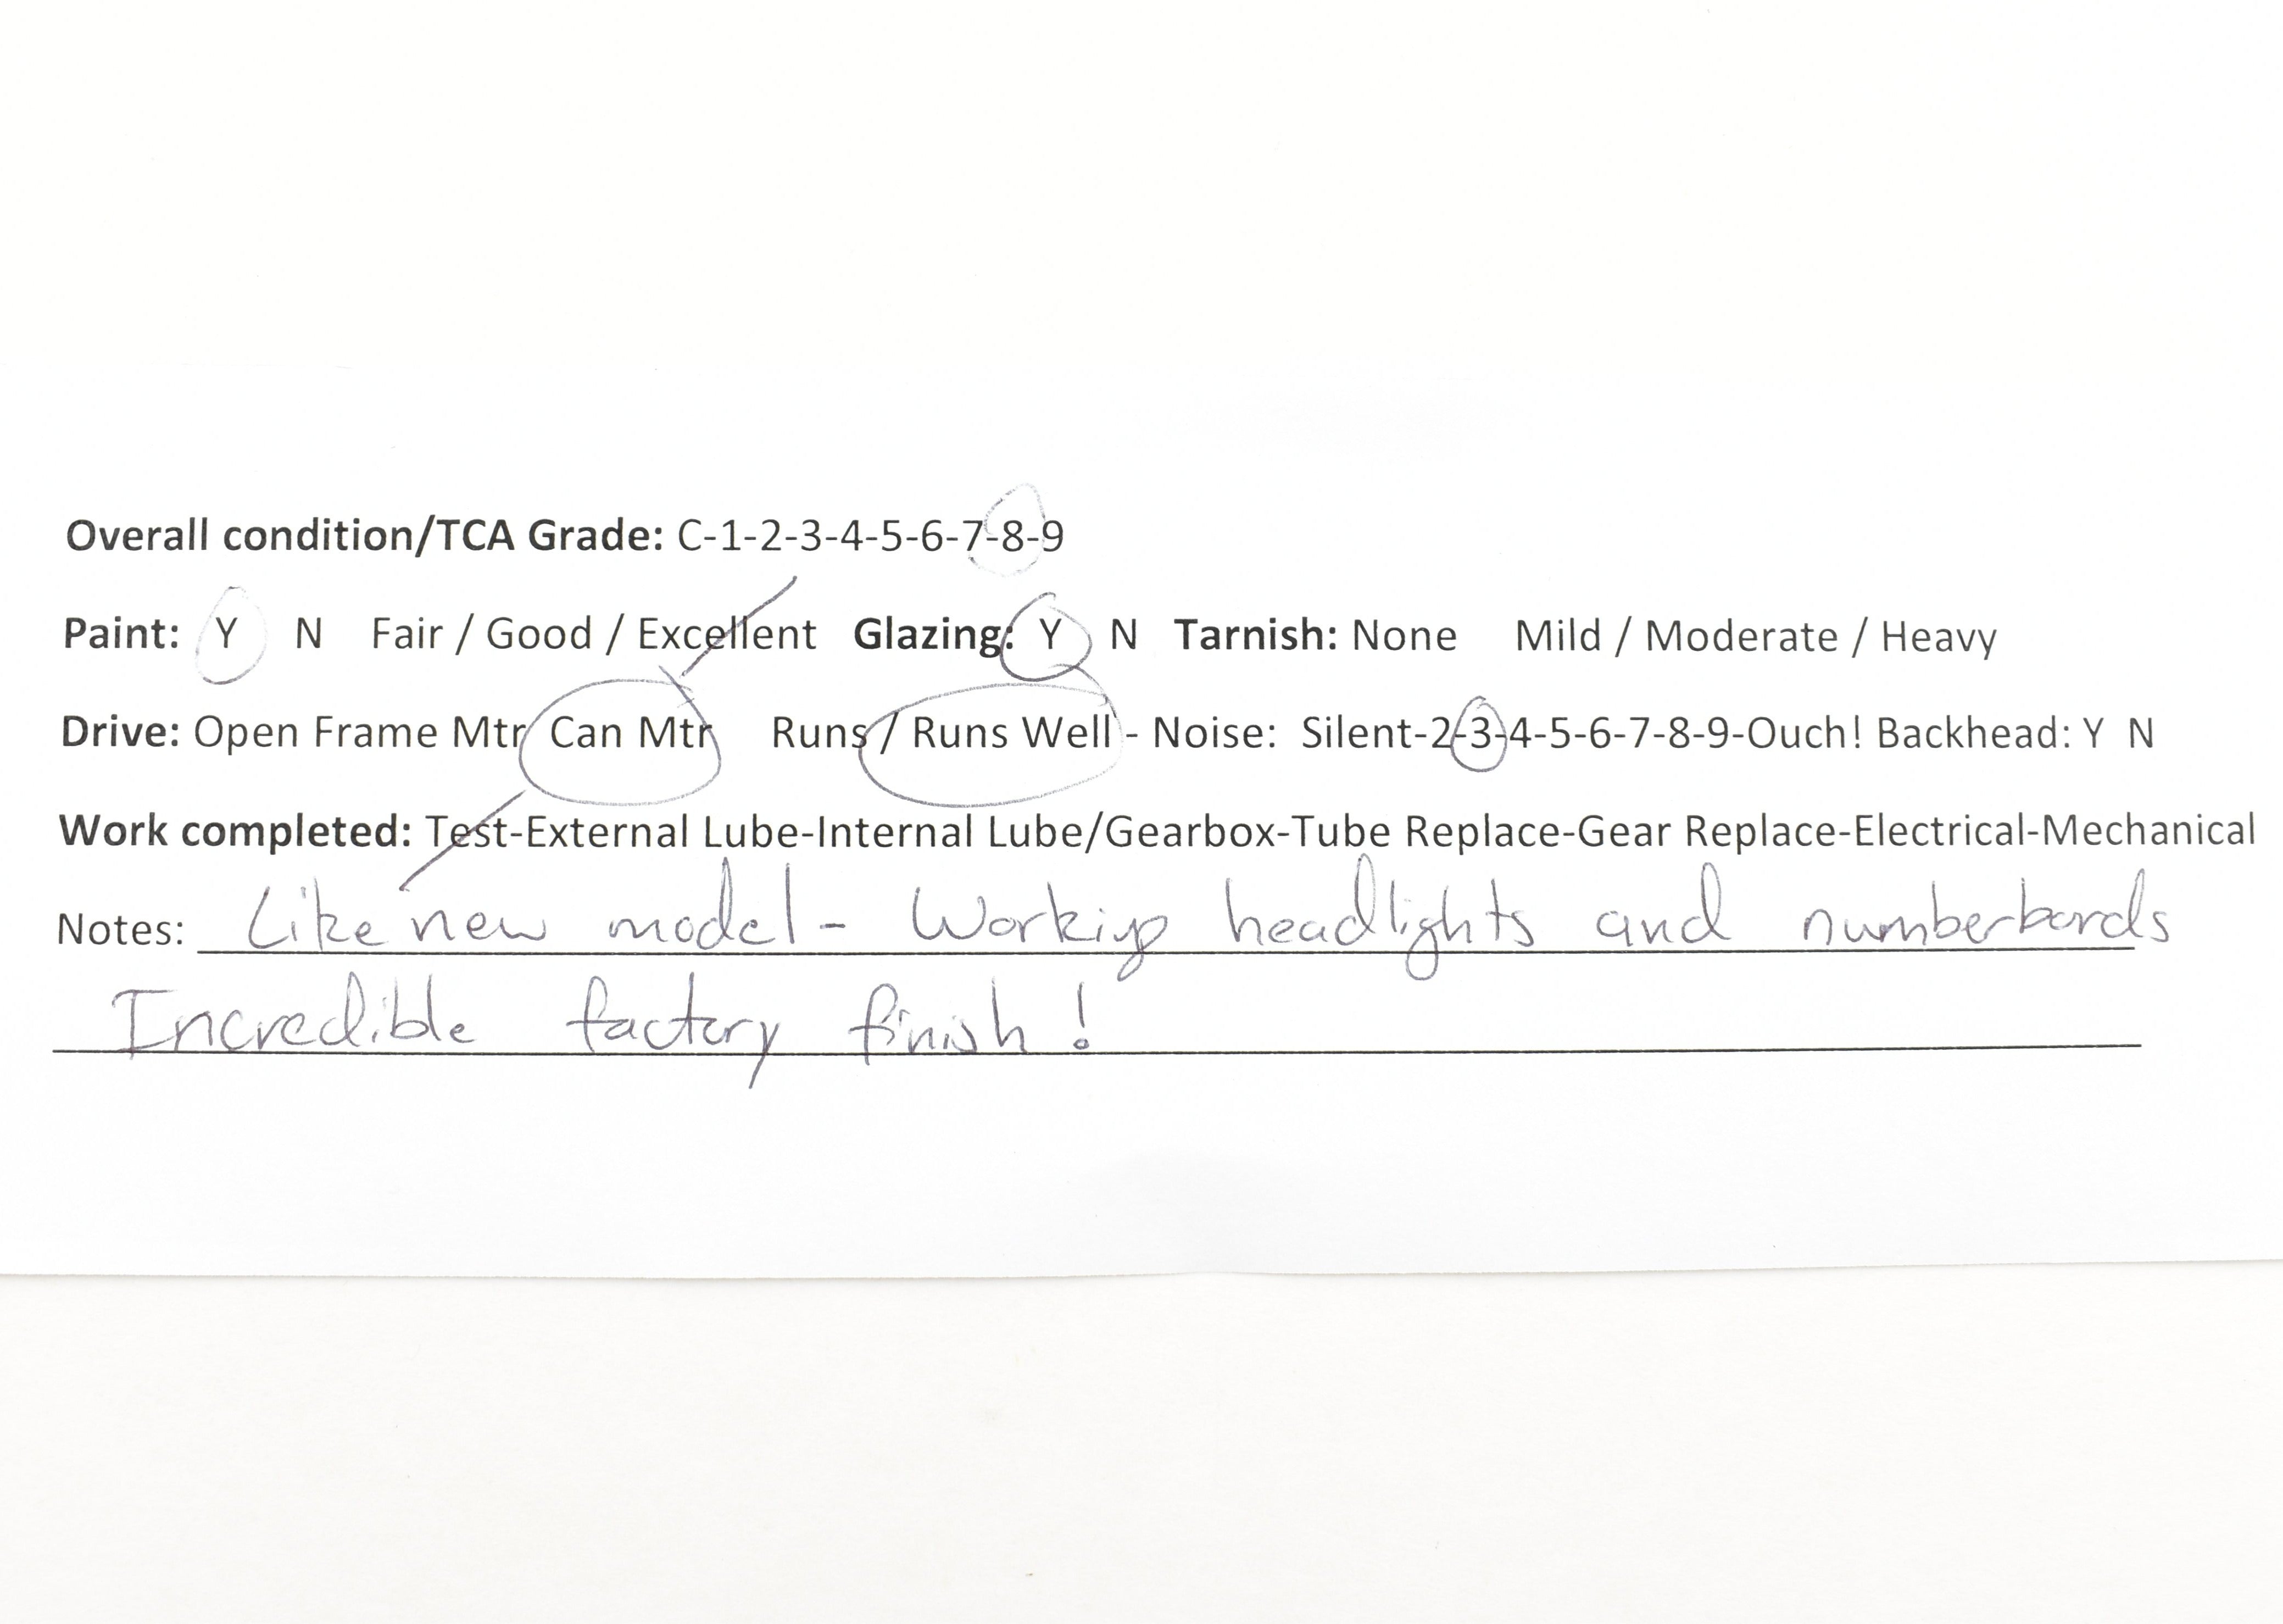 Overall condition/TCA Grade: C-1-2-3-4-5-6-7-8-9
Paint: Y N Fair / Good / Excellent Glazing: Y N Tarnish: None Mild / Moderate / Heavy
Drive: Open Frame Mtr Can Mtr Runs / Runs Well - Noise: Silent-2-3-4-5-6-7-8-9-Ouch! Backhead: Y N
Work completed: Test-External Lube-Internal Lube/Gearbox-Tube Replace-Gear Replace-Electrical-Mechanical
Notes: Like new model - Working headlights and numberbords
Incredible factory finish!